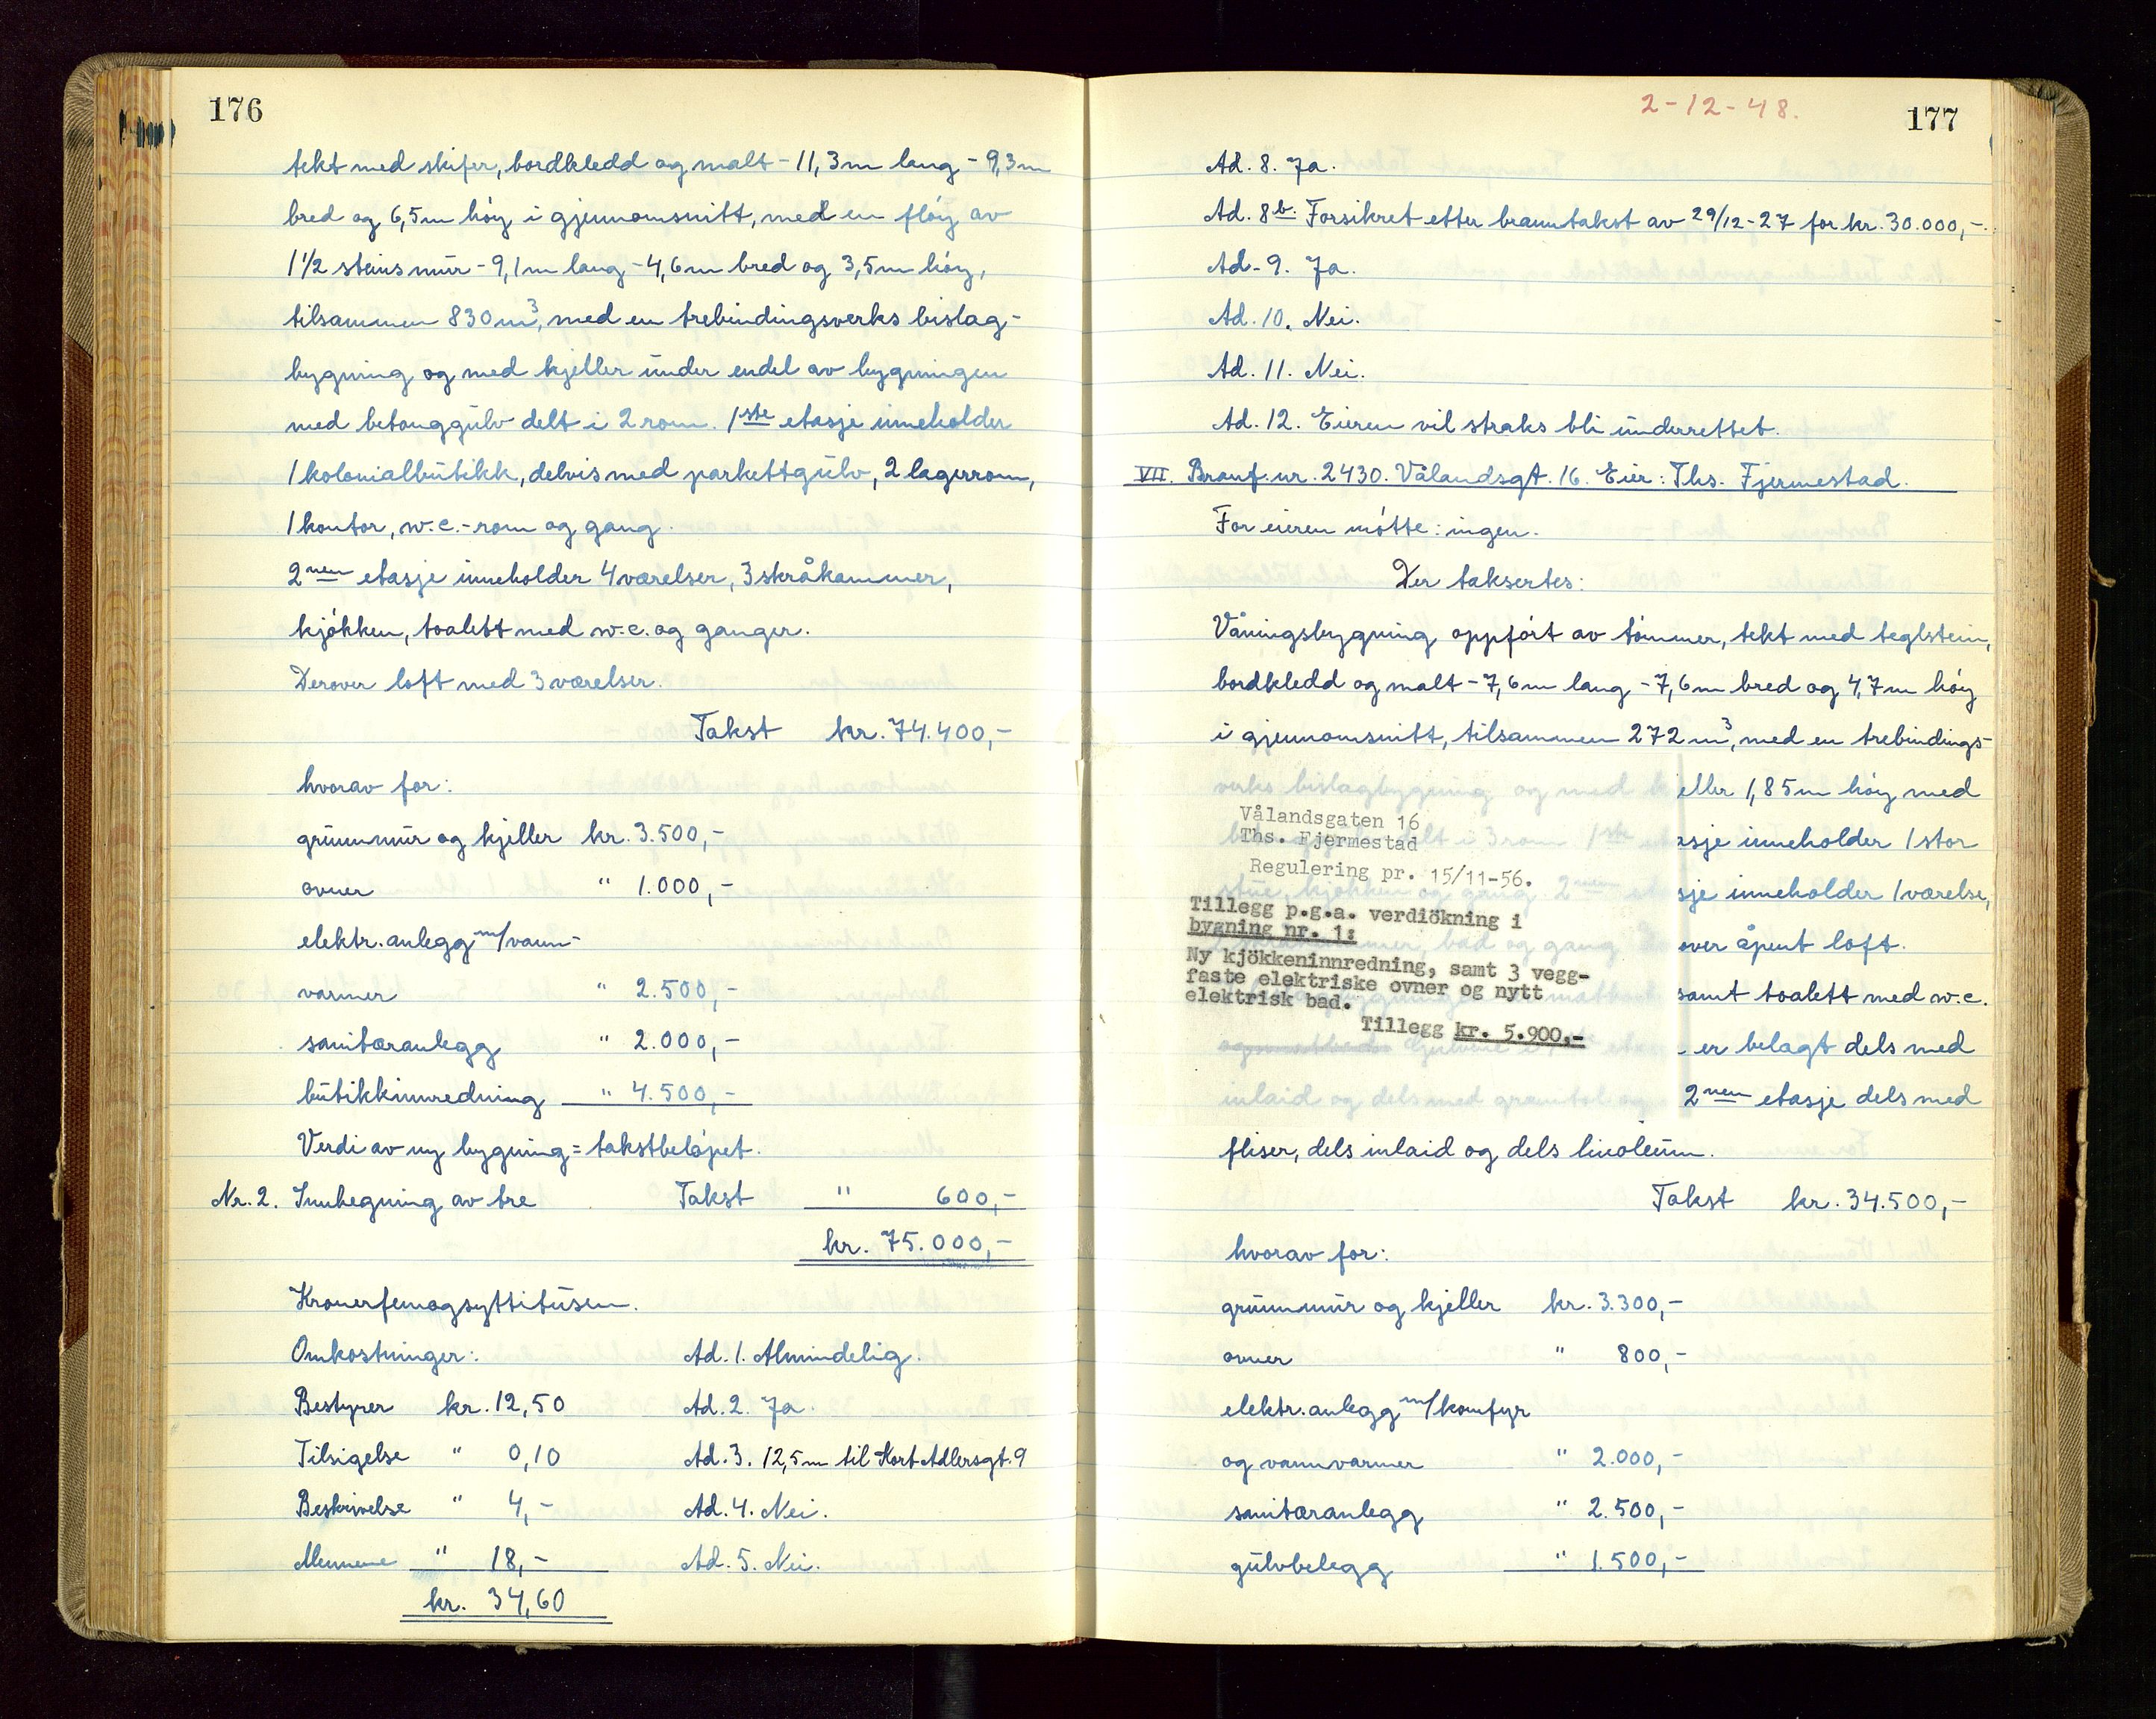 176
tekt med skifer, bordkledd og malt - 11,3m lang - 9,3m
bred og 6,5m høy i gjennomsnitt, med en fløy av
1 1/2 steins mur - 9,1m lang - 4,6m bred og 3,5m høy,
tilsammen 830 m³, med en trebindingsverks bislag-
bygning og med kjeller under endel av bygningen
med betonggulv delt i 2 rom. 1ste etasje inneholder
1 kolonialbutikk, delvis med parkettgulv, 2 lagerrom,
1 kontor, w.c.-rom og gang.
2nen etasje inneholder 4 værelser, 3 skråkammer,
kjøkken, toalett med w.c. og ganger.
Derover loft med 3 værelser.
Takst kr. 74.400,-
hvorav for:
grunnmur og kjeller kr. 3.500,-
ovner " 1.000,-
elektr. anlegg m/vann-
varmer " 2.500,-
sanitæranlegg " 2.000,-
butikkinnredning " 4.500,-
Verdi av ny bygning = takstbeløpet.
Nr. 2. Innhegning av tre Takst " 600,-
kr. 75.000,-
Kronerfemogsyttitusen.
Omkostninger: Ad. 1. Almindelig.
Bestyrer kr. 12,50 Ad. 2. Ja.
Tilsigelse " 0,10 Ad. 3. 12,5m til Kort Adlersgt. 9
Beskrivelse " 4,- Ad. 4. Nei.
Mennene " 18,- Ad. 5. Nei.
kr. 34,60
2-12-48.
177
Ad. 8. Ja.
Ad. 8b. Forsikret etter branntakst av 29/12-27 for kr. 30.000,-.
Ad. 9. Ja.
Ad. 10. Nei.
Ad. 11. Nei.
Ad. 12. Eieren vil straks bli underrettet.
VII. Branf. nr. 2430. Vålandsgt. 16. Eier: Ths. Fjermestad.
For eieren møtte: ingen.
Der taksertes:
Våningsbygning oppført av tømmer, tekt med teglstein,
bordkledd og malt - 7,6m lang - 7,6m bred og 4,7m høy
i gjennomsnitt, tilsammen 272 m³, med en trebindings-
verks bislagbygning og med kjeller 1,85m høy med
Vålandsgaten 16
Ths. Fjermestad
Regulering pr. 15/11-56.
Tillegg p.g.a. verdiökning i
bygning nr. 1:
Ny kjökkeninnredning, samt 3 vegg-
faste elektriske ovner og nytt
elektrisk bad.
Tillegg kr. 5.900.-
asje inneholder 1 stor
sje inneholder 1 værelse,
over åpent loft.
samt toalett med w.c.
- er belagt dels med
inlaid og dels med granitol og 2nen etasje dels med
fliser, dels inlaid og dels linoleum.
Takst kr. 34.500,-
hvorav for:
grunnmur og kjeller kr. 3.300,-
ovner " 800,-
elektr. anlegg m/komfyr
og vannvarmer " 2.000,-
sanitæranlegg " 2.500,-
gulvbelegg " 1.500,-